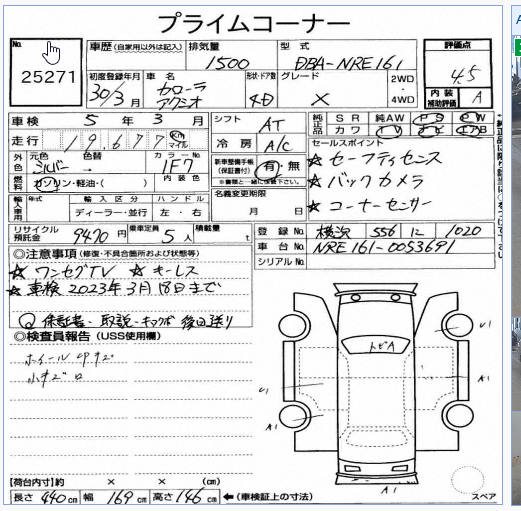 プライムコーナー
No.
25271
車歴 (自家用以外は記入)
排気量
1500
型式
DBA-NRE161
評価点
4.5
内装
補助評価
A
初度登録年月
30/3月
車名
カローラ
アクシオ
形状・ドア数
4D
グレード
X
2WD
4WD
車検 5年 3月
シフト AT
純正品
SR 純AW PS PW
カワ TV ナビ エアB
走行 19,677 km マイル
冷房 A/C
セールスポイント
★セーフティセンス
★バックカメラ
★コーナーセンサー
外色
元色 シルバー
色替 →
カラーNo 1F7
新車整備手帳
(保証書付)
有・無
燃料 ガソリン・軽油・( )
内装色
名義変更期限
月 日
輸入車用
年式
輸入区分
ハンドル
ディーラー・並行
左・右
リサイクル
預託金
9470円
乗車定員 5人
積載量 t
登録No. 横浜 556 に 1020
車台No. NRE161-0053691
シリアルNo.
◎注意事項 (修復・不具合箇所および状態等)
★ワンセグTV ★キーレス
★車検 2023年3月18日まで
保証書・取説・ 後日送り
◎検査員報告 (USS使用欄)
ホイールキズ
小キズ
U1
トビA
A1
U1
A1
A1
【荷台内寸】約 × × (cm)
長さ 440cm 幅 169cm 高さ 146cm ←(車検証上の寸法)
スペア